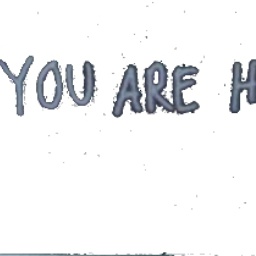 YOU ARE H